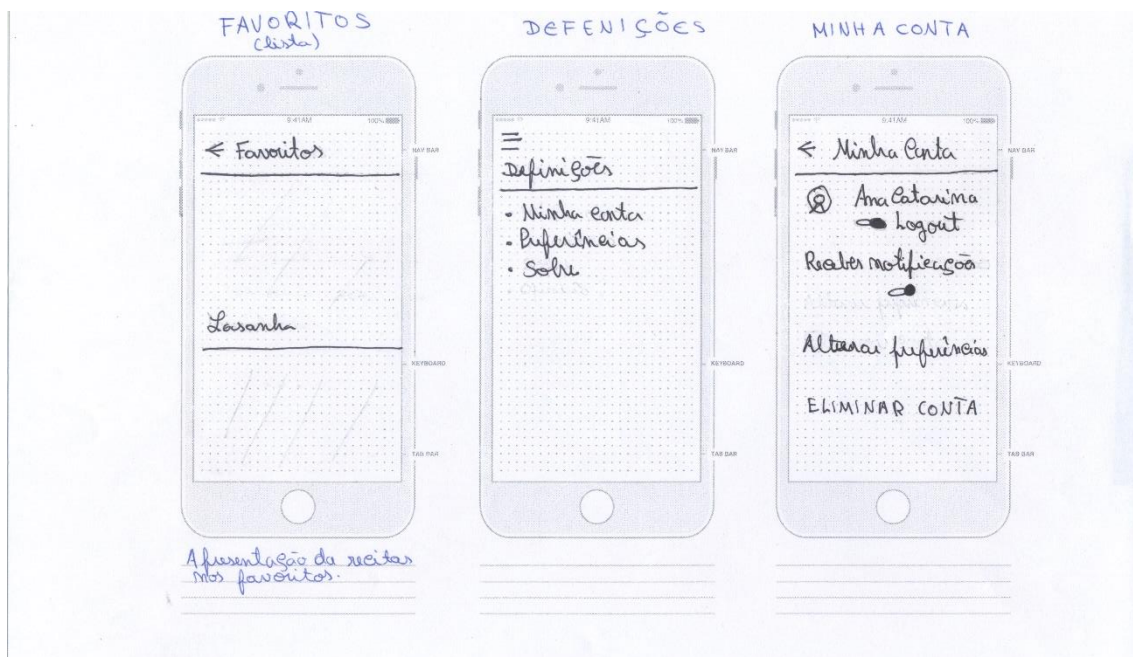 FAVORITOS
(lista)
9:41 AM
100%
← Favoritos
NAV BAR
Lasanha
KEYBOARD
TAB BAR
Apresentação da receitas
nos favoritos.
DEFENIÇÕES
9:41 AM
100%
Definições
NAV BAR
• Minha conta
• Preferências
• Sobre
KEYBOARD
TAB BAR
MINHA CONTA
9:41 AM
100%
← Minha Conta
NAV BAR
Ana Catarina
Logout
Receber notificações
Alterar preferências
KEYBOARD
ELIMINAR CONTA
TAB BAR